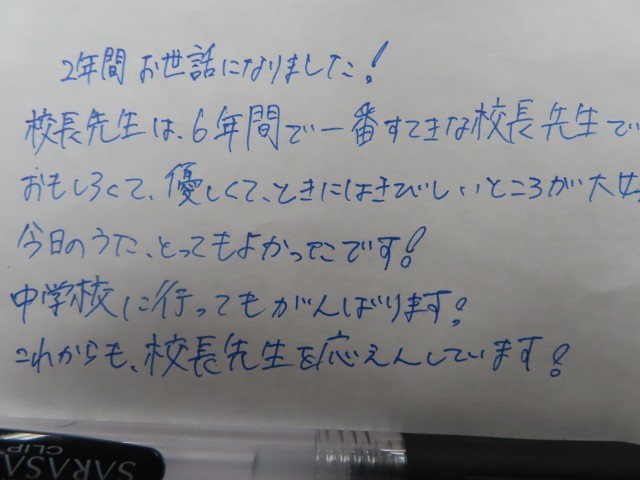 2年間お世話になりました!
校長先生は、6年間で一番すてきな校長先生で
おもしろくて、優しくて、ときにはきびしいところが大
今日のうた、とってもよかったです!
中学校に行ってもがんばります!
これからも、校長先生を応えんしています!
SARASA
CLIP